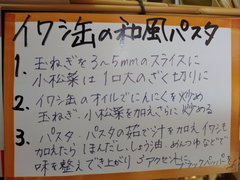 イワシ缶の和風パスタ
1. 玉ねぎを3~5mmのスライスに
小松菜は一口大のざく切りに
2. イワシ缶のオイルでにんにくを炒め
玉ねぎ、小松菜を加えさらに炒める
3. パスタ・パスタの茹で汁を加えイワシも
加えたら ほんだし、しょう油、めんつゆなどで
味を整えでき上がり
アクセントにブラックペッパーを